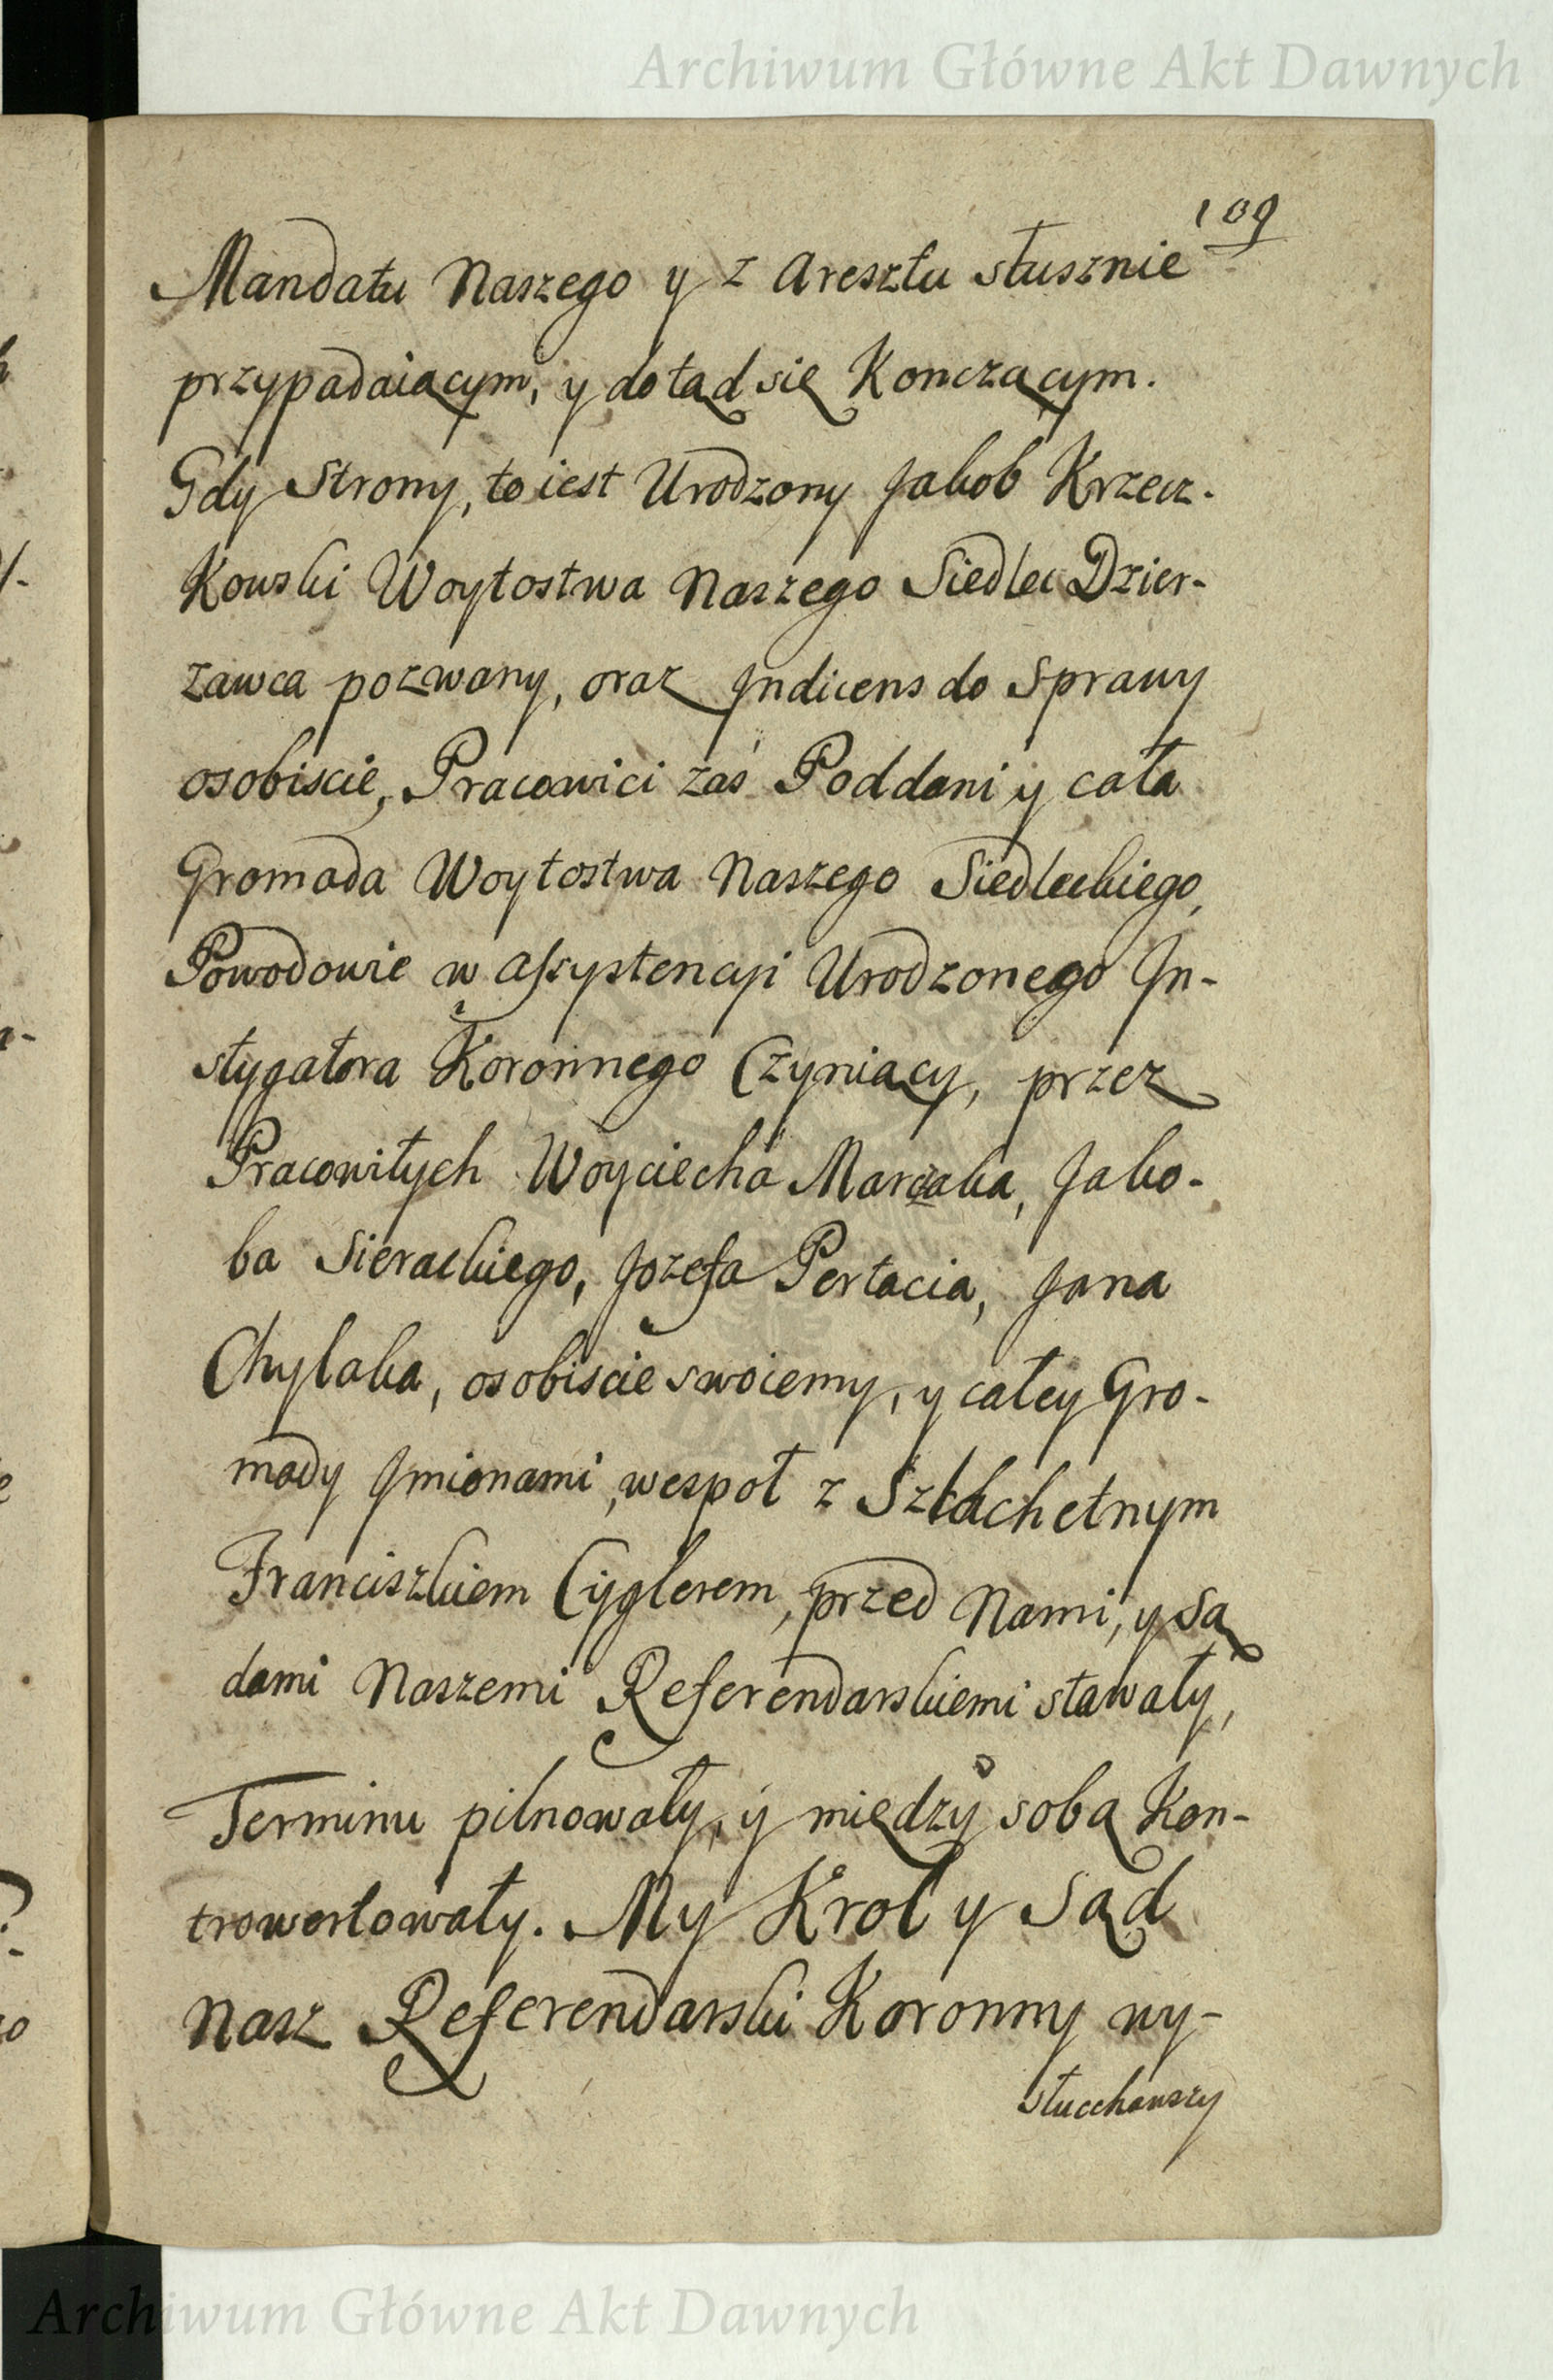 Archiwum Główne Akt Dawnych
109
Mandatu Naszego y z Aresztu słusznie
przypadaiącym, y dotąd się Konczącym.
Gdy Strony, to iest Urodzony Jakob Krzecz-
Kowski Woytostwa Naszego Siedlec Dzier-
zawca pozwany, oraz Jndicens do Sprawy
osobiscie, Pracowici zaś Poddani y cała
Gromada Woytostwa Naszego Siedleckiego,
Powodowie w assystencyi Urodzonego Jn-
stygatora Koronnego Czyniący, przez
Pracowitych Woyciecha Marczaka, Jako-
ba Sierackiego, Jozefa Pertacia, Jana
Chylaka, osobiscie swoiemy, y całey Gro-
mady Jmionami, wespoł z Szlachetnym
Franciszkiem Cyglerem, przed Nami, y Są
dami Naszemi Referendarskiemi stawały,
Terminu pilnowały, y między sobą Kon-
trowertowały. My Krol y Sąd
Nasz Referendarski Koronny wy-
słuchawszy
Archiwum Główne Akt Dawnych